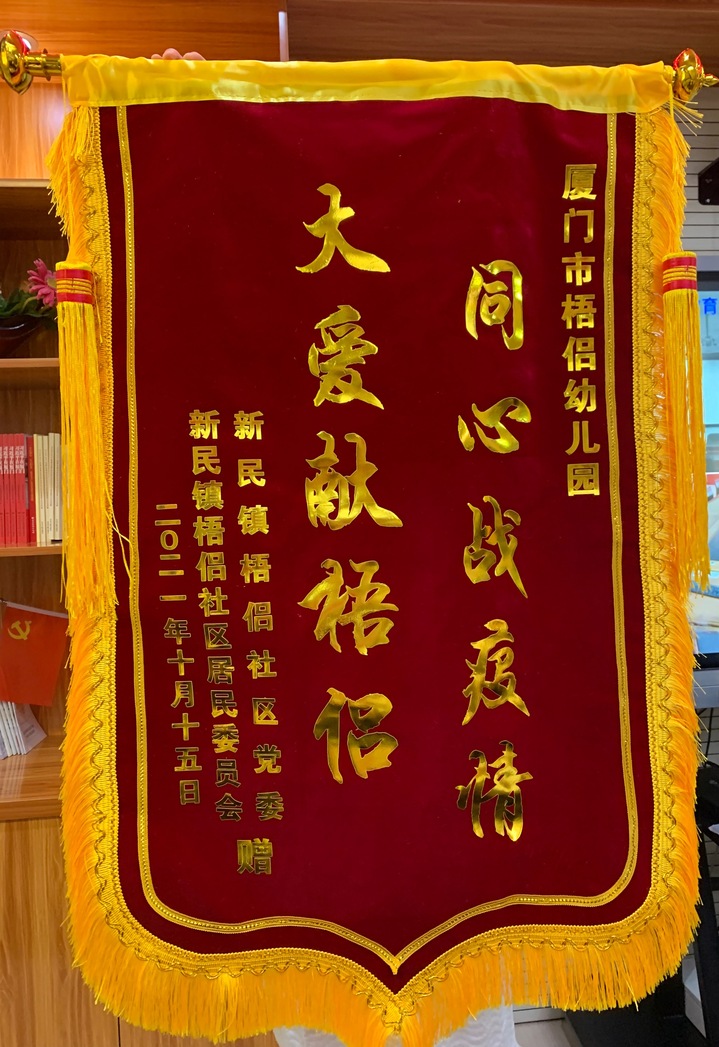 厦门市梧侣幼儿园
同心战疫情
大爱献梧侣
新民镇梧侣社区党委
新民镇梧侣社区居民委员会
赠
二〇二一年十月十五日
育